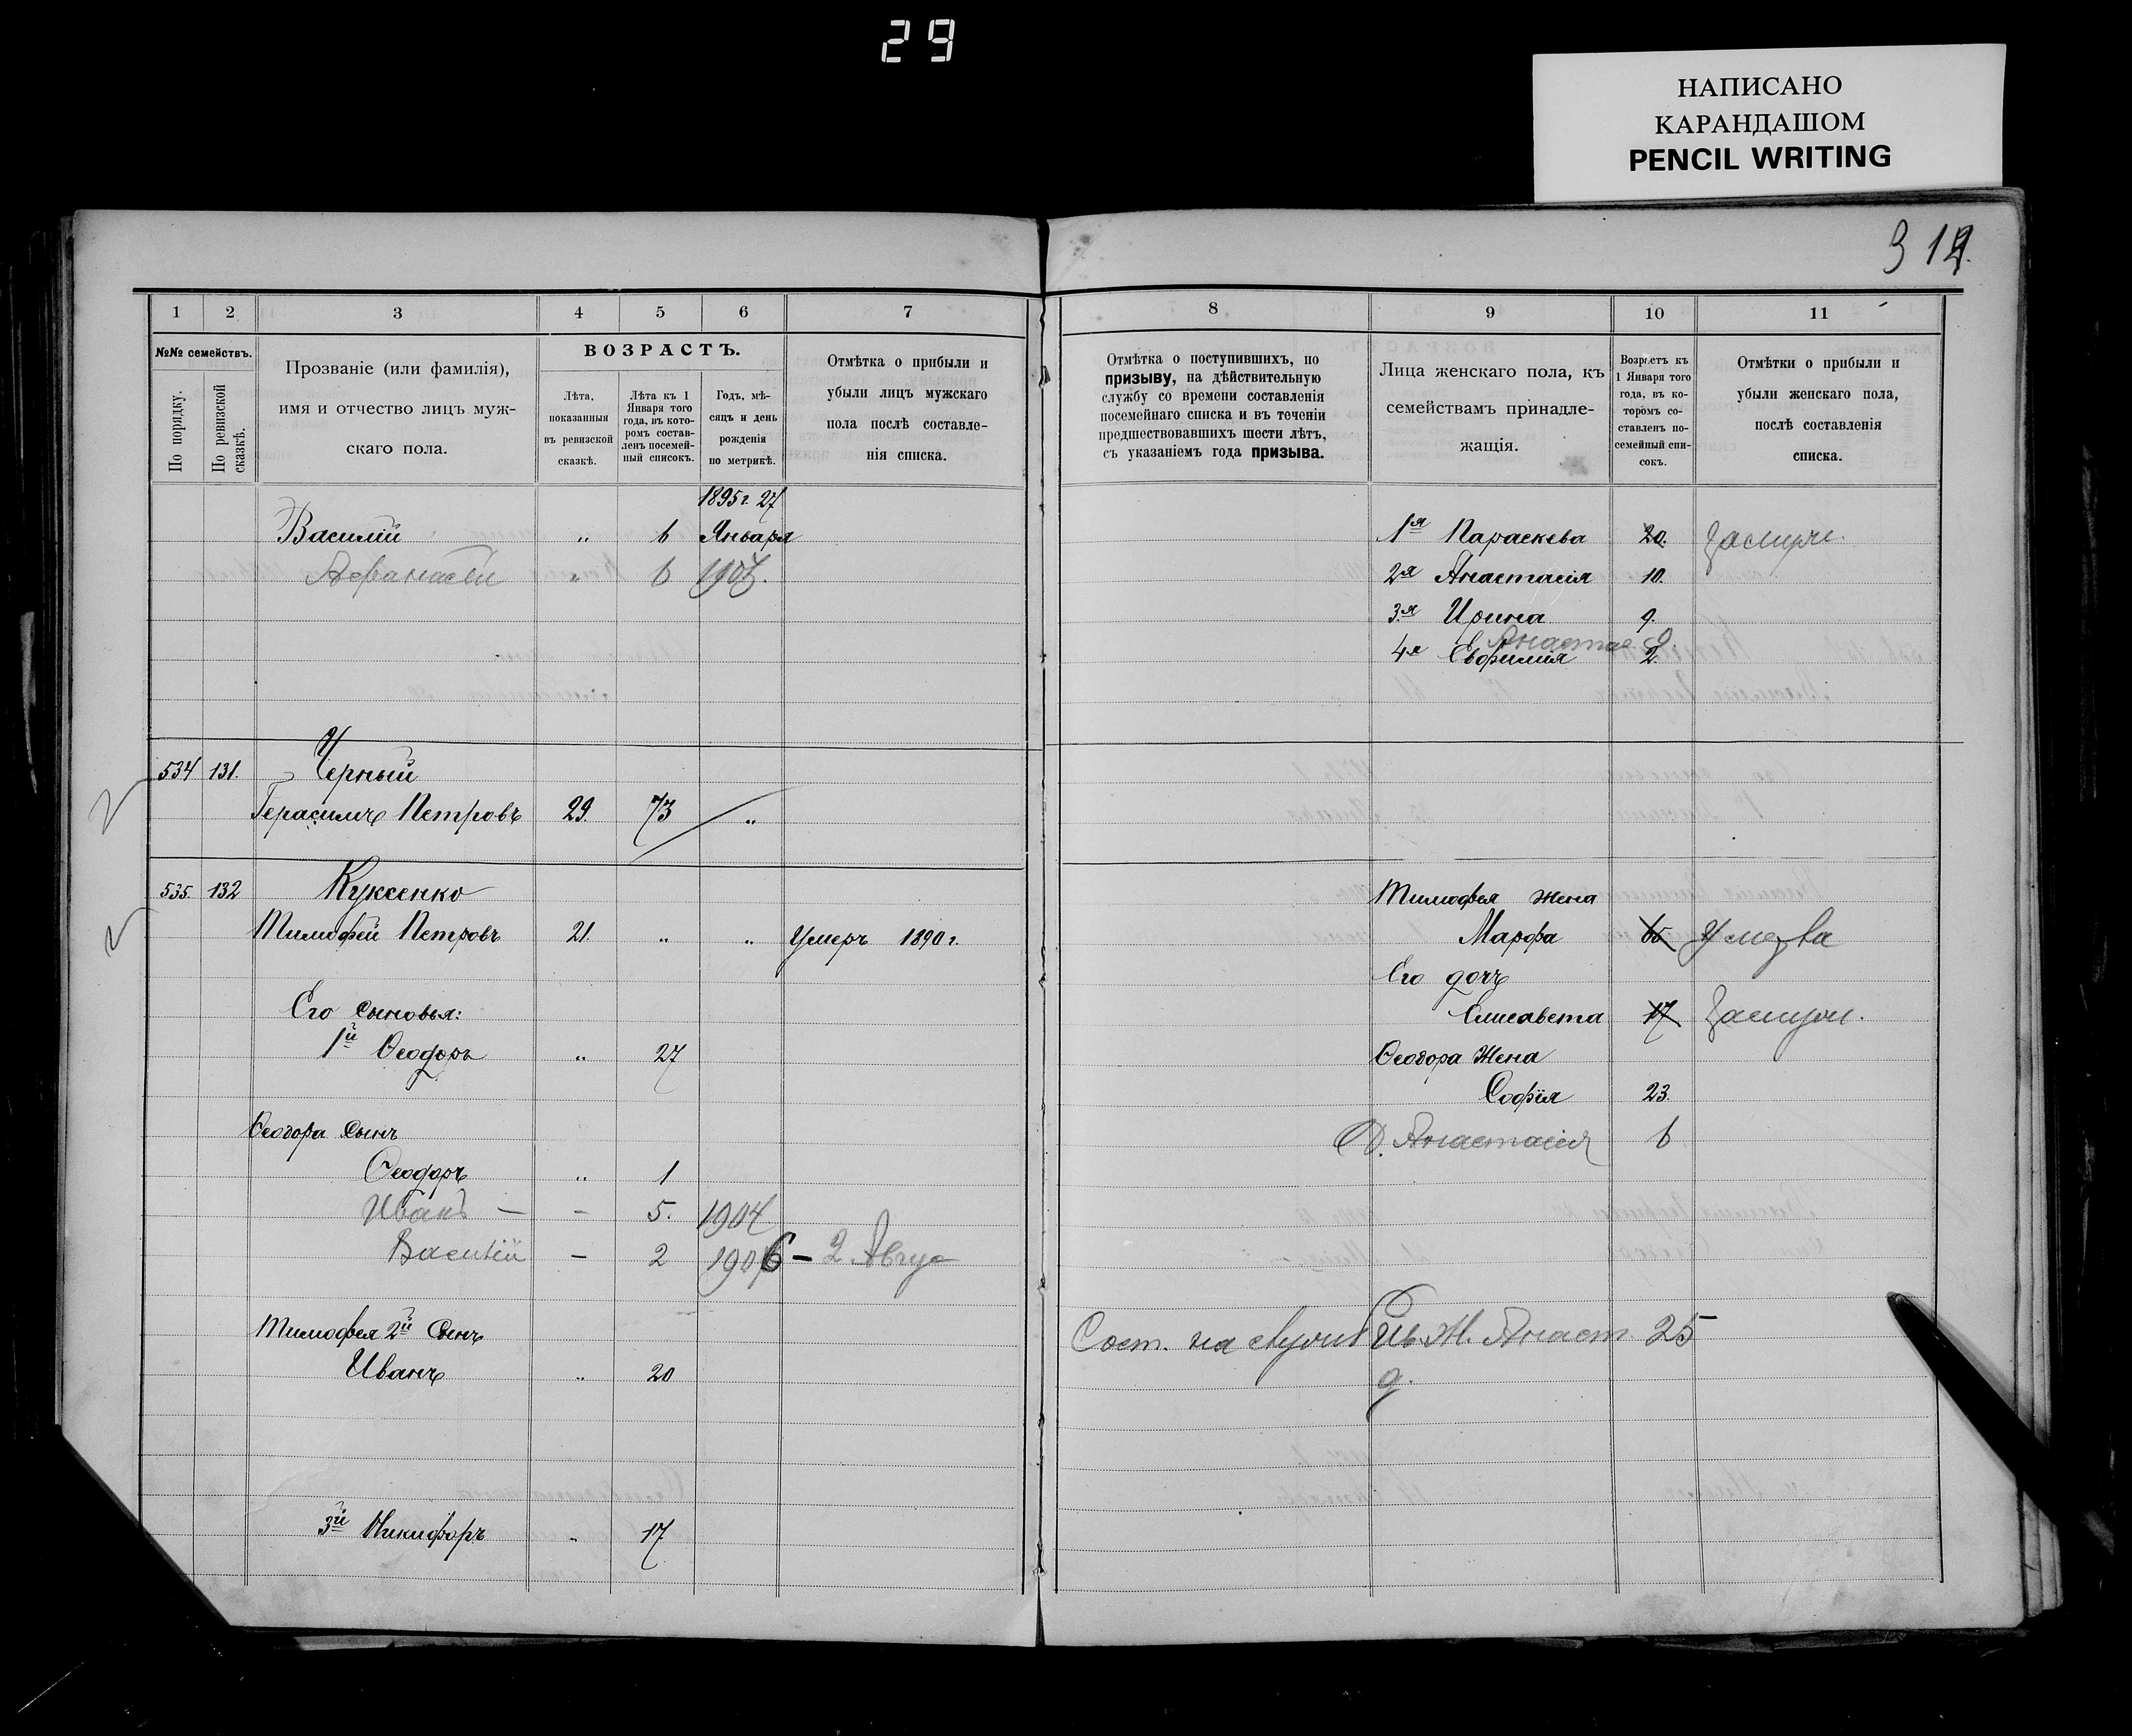 29
НАПИСАНО
КАРАНДАШОМ
PENCIL WRITING
312
1 2 3 4 5 6 7
№№ семействъ.
По порядку.
По ревизской сказкѣ.
Прозваніе (или фамилія),
имя и отчество лицъ муж-
скаго пола.
ВОЗРАСТЪ.
Лѣта,
показанныя
въ ревизской
сказкѣ.
Лѣта къ 1
Января того
года, въ кото-
ромъ состав-
ленъ посемей-
ный списокъ.
Годъ, мѣ-
сяцъ и день
рожденія
по метрикѣ.
Отмѣтка о прибыли и
убыли лицъ мужскаго
пола послѣ составле-
нія списка.
1895 г. 27
Василій „ 6 Января
Афанасій „ 6 1904.
534 131. Черный
Герасимъ Петровъ 29. 73 „
535. 132 Куксенко
Тимофей Петровъ 21. „ „ Умеръ 1890 г.
Его сыновья:
1й Ѳеодоръ „ 27
Ѳеодора сынъ
Ѳеодоръ „ 1
Иванъ — – 5. 1904
Василій – 2 1906 – 2 Авгус
Тимофея 2й сынъ
Иванъ „ 20
3й Никифоръ „ 17
8 9 10 11
Отмѣтка о поступившихъ, по
призыву, на дѣйствительную
службу со времени составленія
посемейнаго списка и въ теченіи
предшествовавшихъ шести лѣтъ,
съ указаніемъ года призыва.
Лица женскаго пола, къ
семействамъ принадле-
жащія.
Возрастъ къ
1 Января того
года, въ ко-
торомъ со-
ставленъ по-
семейный спи-
сокъ.
Отмѣтки о прибыли и
убыли женскаго пола,
послѣ составленія
списка.
1я Параскева 20. Замуж.
2я Анастасія 10.
3я Ирина 9.
Анастас 9.
4я Евфимія 2.
Тимофея жена
Марфа 65 Умерла
Его дочь
Елисавета 17 Замуж.
Ѳеодора Жена
Софія 23.
Д. Анастасія 6
Сост. на службѣ Ив. Ж. Анаст. 25
д.